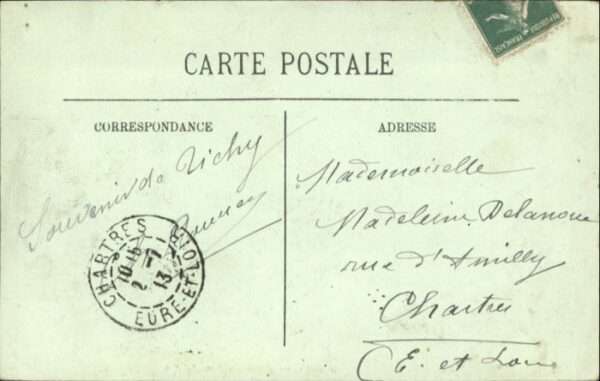 CARTE POSTALE
CORRESPONDANCE
ADRESSE
Souvenir de Vichy
Mademoiselle
Madeleine Delanoue
rue d'Amilly
Chartres
E. et Loir
CHARTRES
EURE-ET-LOIR
10 15
2 - 7
13
REPUBLIQUE FRANÇAISE